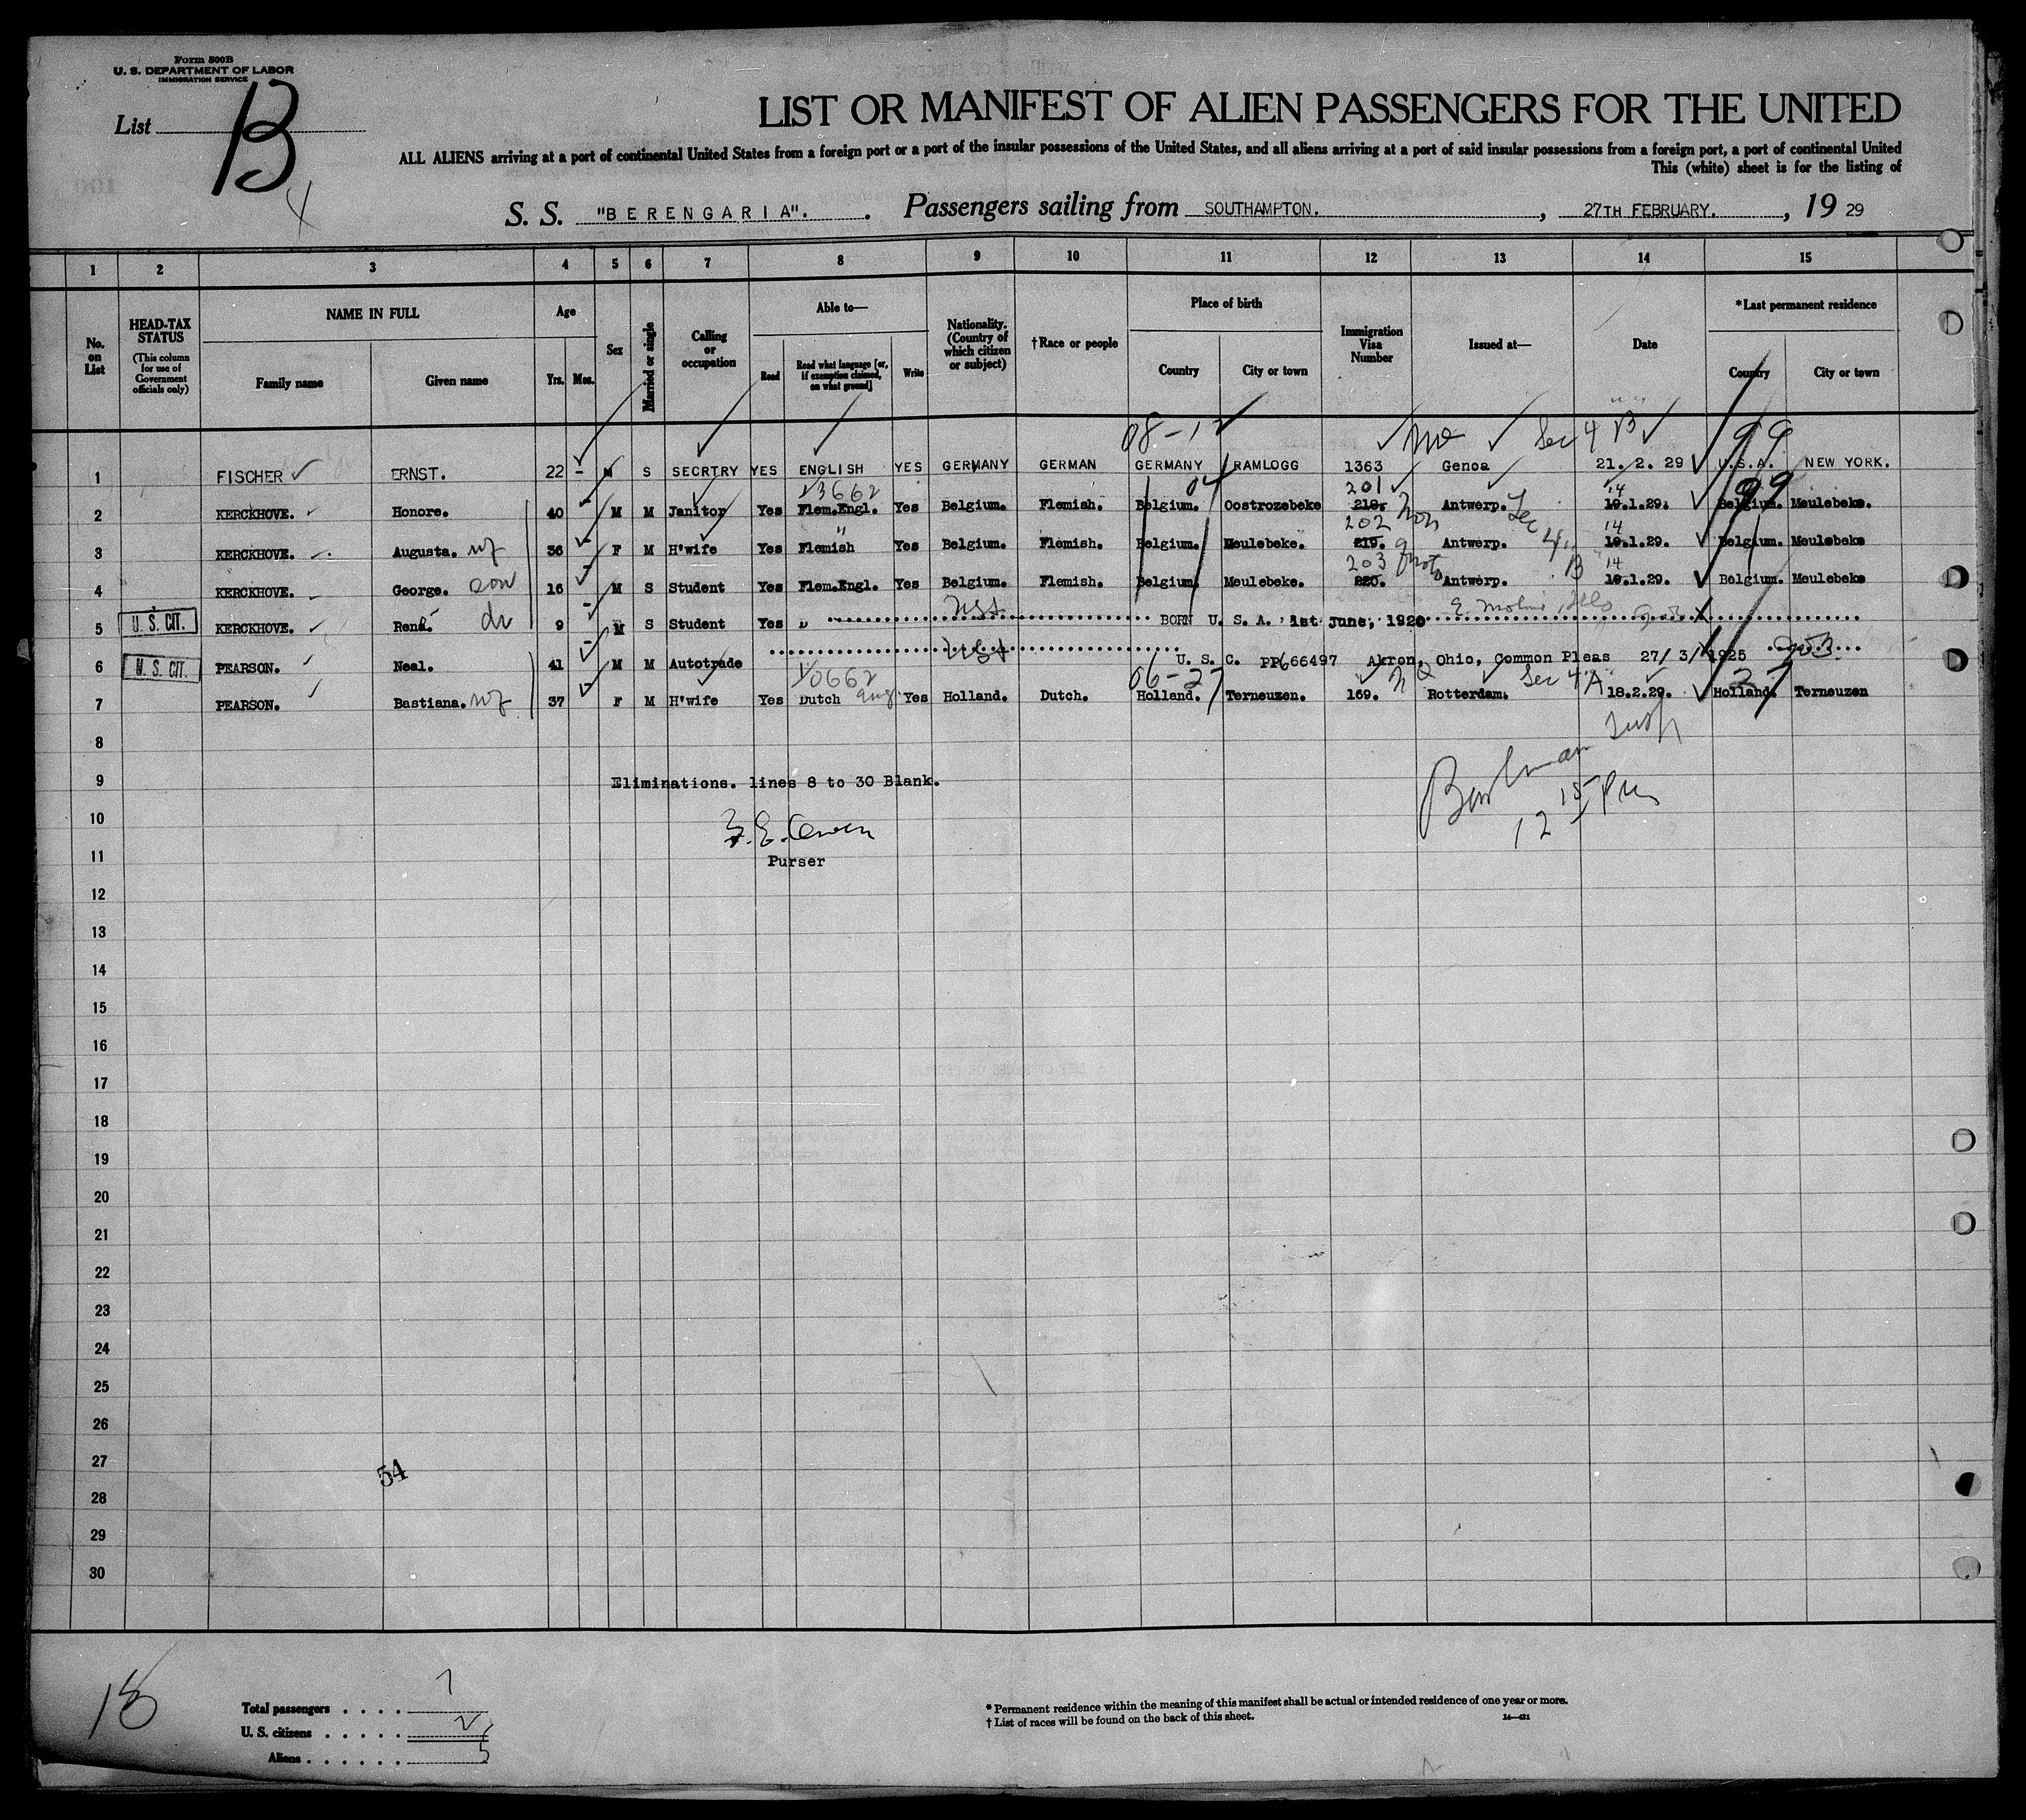 Form 500B
U. S. DEPARTMENT OF LABOR
IMMIGRATION SERVICE
List B
LIST OR MANIFEST OF ALIEN PASSENGERS FOR THE UNITED
ALL ALIENS arriving at a port of continental United States from a foreign port or a port of the insular possessions of the United States, and all aliens arriving at a port of said insular possessions from a foreign port, a port of continental United
This (white) sheet is for the listing of
S. S. "BERENGARIA". Passengers sailing from SOUTHAMPTON. , 27TH FEBRUARY. , 19 29
1 2 3 4 5 6 7 8 9 10 11 12 13 14 15
No. on List
HEAD-TAX STATUS (This column for use of Government officials only)
NAME IN FULL
Family name Given name
Age
Yrs. Mos.
Sex
Married or single
Calling or occupation
Able to—
Read Read what language [or, if exemption claimed, on what ground] Write
Nationality. (Country of which citizen or subject)
†Race or people
Place of birth
Country City or town
Immigration Visa Number
Issued at—
Date
*Last permanent residence
Country City or town
08-12 Sec 4 B 99
1 FISCHER ERNST. 22 - M S SECRTRY YES ENGLISH YES GERMANY GERMAN GERMANY RAMLOGG 1363 Genoa 21. 2. 29 U.S.A. NEW YORK.
23662 04 201 14 99
2 KERCKHOVE. Honore. 40 M M Janitor Yes Flem.Engl. Yes Belgium. Flemish. Belgium. Oostrozebeke 218. Non Antwerp. Sec 19.1.29. Belgium. Meulebeke.
" 202 14
3 KERCKHOVE. Augusta. wf 36 F M H'wife Yes Flemish Yes Belgium. Flemish. Belgium. Meulebeke. 219. Antwerp. 4 19.1.29. Belgium. Meulebeke
203 14
4 KERCKHOVE. George. son 16 M S Student Yes Flem.Engl. Yes Belgium. Flemish. Belgium. Meulebeke. 220. Antwerp. B 19.1.29. Belgium. Meulebeke
5 U. S. CIT. KERCKHOVE. René. 9 M S Student Yes BORN U. S. A. 1st June, 1920 E. Moline, Ills
6 U. S. CIT. PEARSON. Neal. 41 M M Autotrade U. S. C. PP666497 Akron, Ohio, Common Pleas 27/ 3/ 1925
10662 06-27 Sec 4 A 27
7 PEARSON. Bastiana. wf 37 F M H'wife Yes Dutch Eng Yes Holland. Dutch. Holland. Terneuzen. 169. NQ Rotterdam. 18.2.29. Holland. Terneuzen
8
9 Eliminations. lines 8 to 30 Blank.
10 12 15 Pm
11 Purser
12
13
14
15
16
17
18
19
20
21
22
23
24
25
26
27
54
28
29
30
Total passengers . . . . 7
U. S. citizens . . . . . 2
Aliens . . . . . . 5
* Permanent residence within the meaning of this manifest shall be actual or intended residence of one year or more.
† List of races will be found on the back of this sheet.
14—421